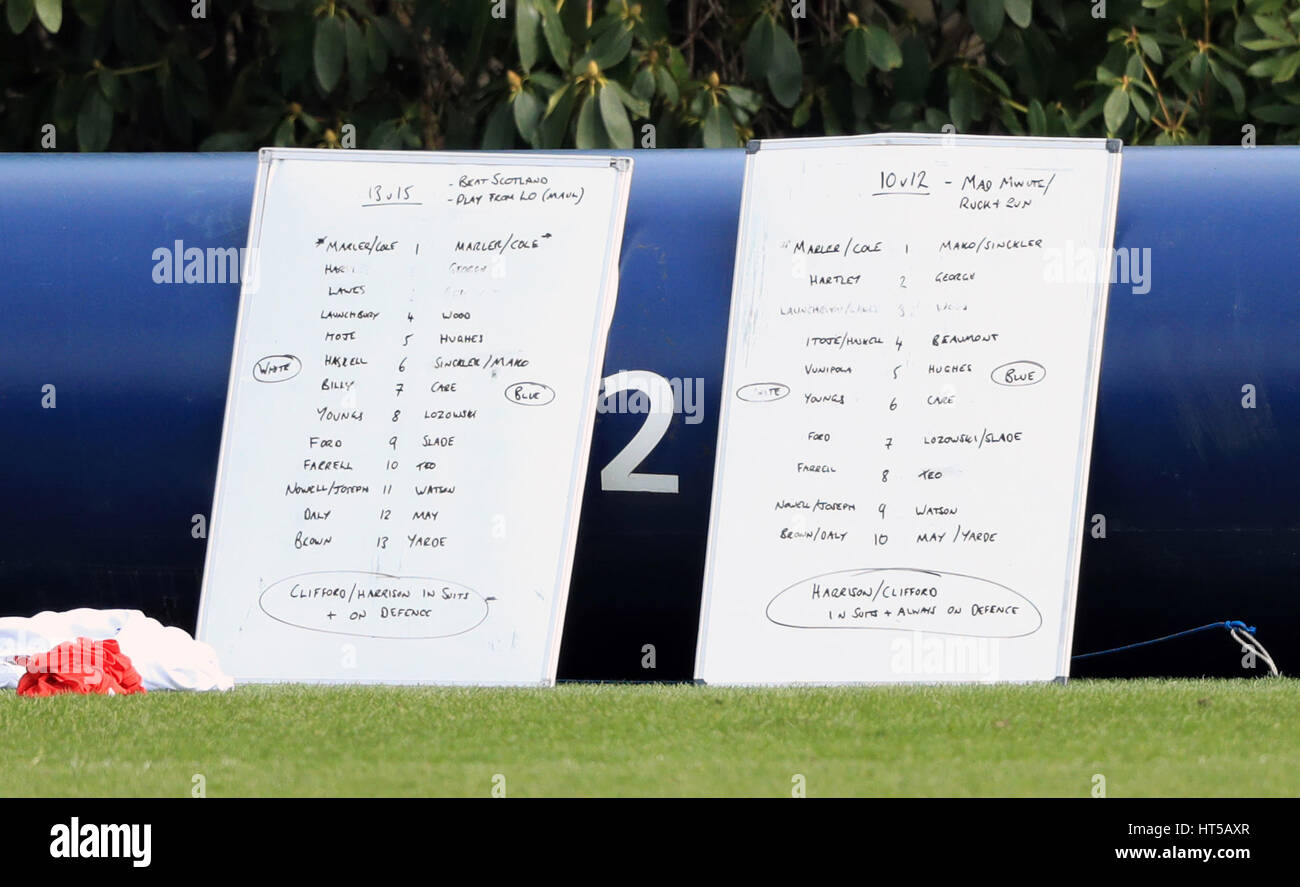 13 v 15 - BEAT SCOTLAND
- PLAY FROM LO (MAUL)
* MARLER/COLE 1 MARLER/COLE *
GEORGE
LAWES
LAUNCHBURY 4 WOOD
ITOJE 5 HUGHES
HASKELL 6 SINCKLER/MAKO
WHITE
BILLY 7 CARE
BLUE
YOUNGS 8 LOZOWSKI
FORD 9 SLADE
FARRELL 10 TEO
NOWELL/JOSEPH 11 WATSON
DALY 12 MAY
BROWN 13 YARDE
CLIFFORD/HARRISON IN SUITS
+ ON DEFENCE
2
10 v 12 - MAD MINUTE/
RUCK + RUN
MARLER/COLE 1 MAKO/SINCKLER
HARTLEY 2 GEORGE
LAUNCHBURY/LAWES 3 WOOD
ITOJE/HASKELL 4 BEAUMONT
VUNIPOLA 5 HUGHES
BLUE
WHITE
YOUNGS 6 CARE
FORD 7 LOZOWSKI/SLADE
FARRELL 8 TEO
NOWELL/JOSEPH 9 WATSON
BROWN/DALY 10 MAY/YARDE
HARRISON/CLIFFORD
IN SUITS + ALWAYS ON DEFENCE
alamy
alamy
a
alamy stock photo
HT5AXR
www.alamy.com